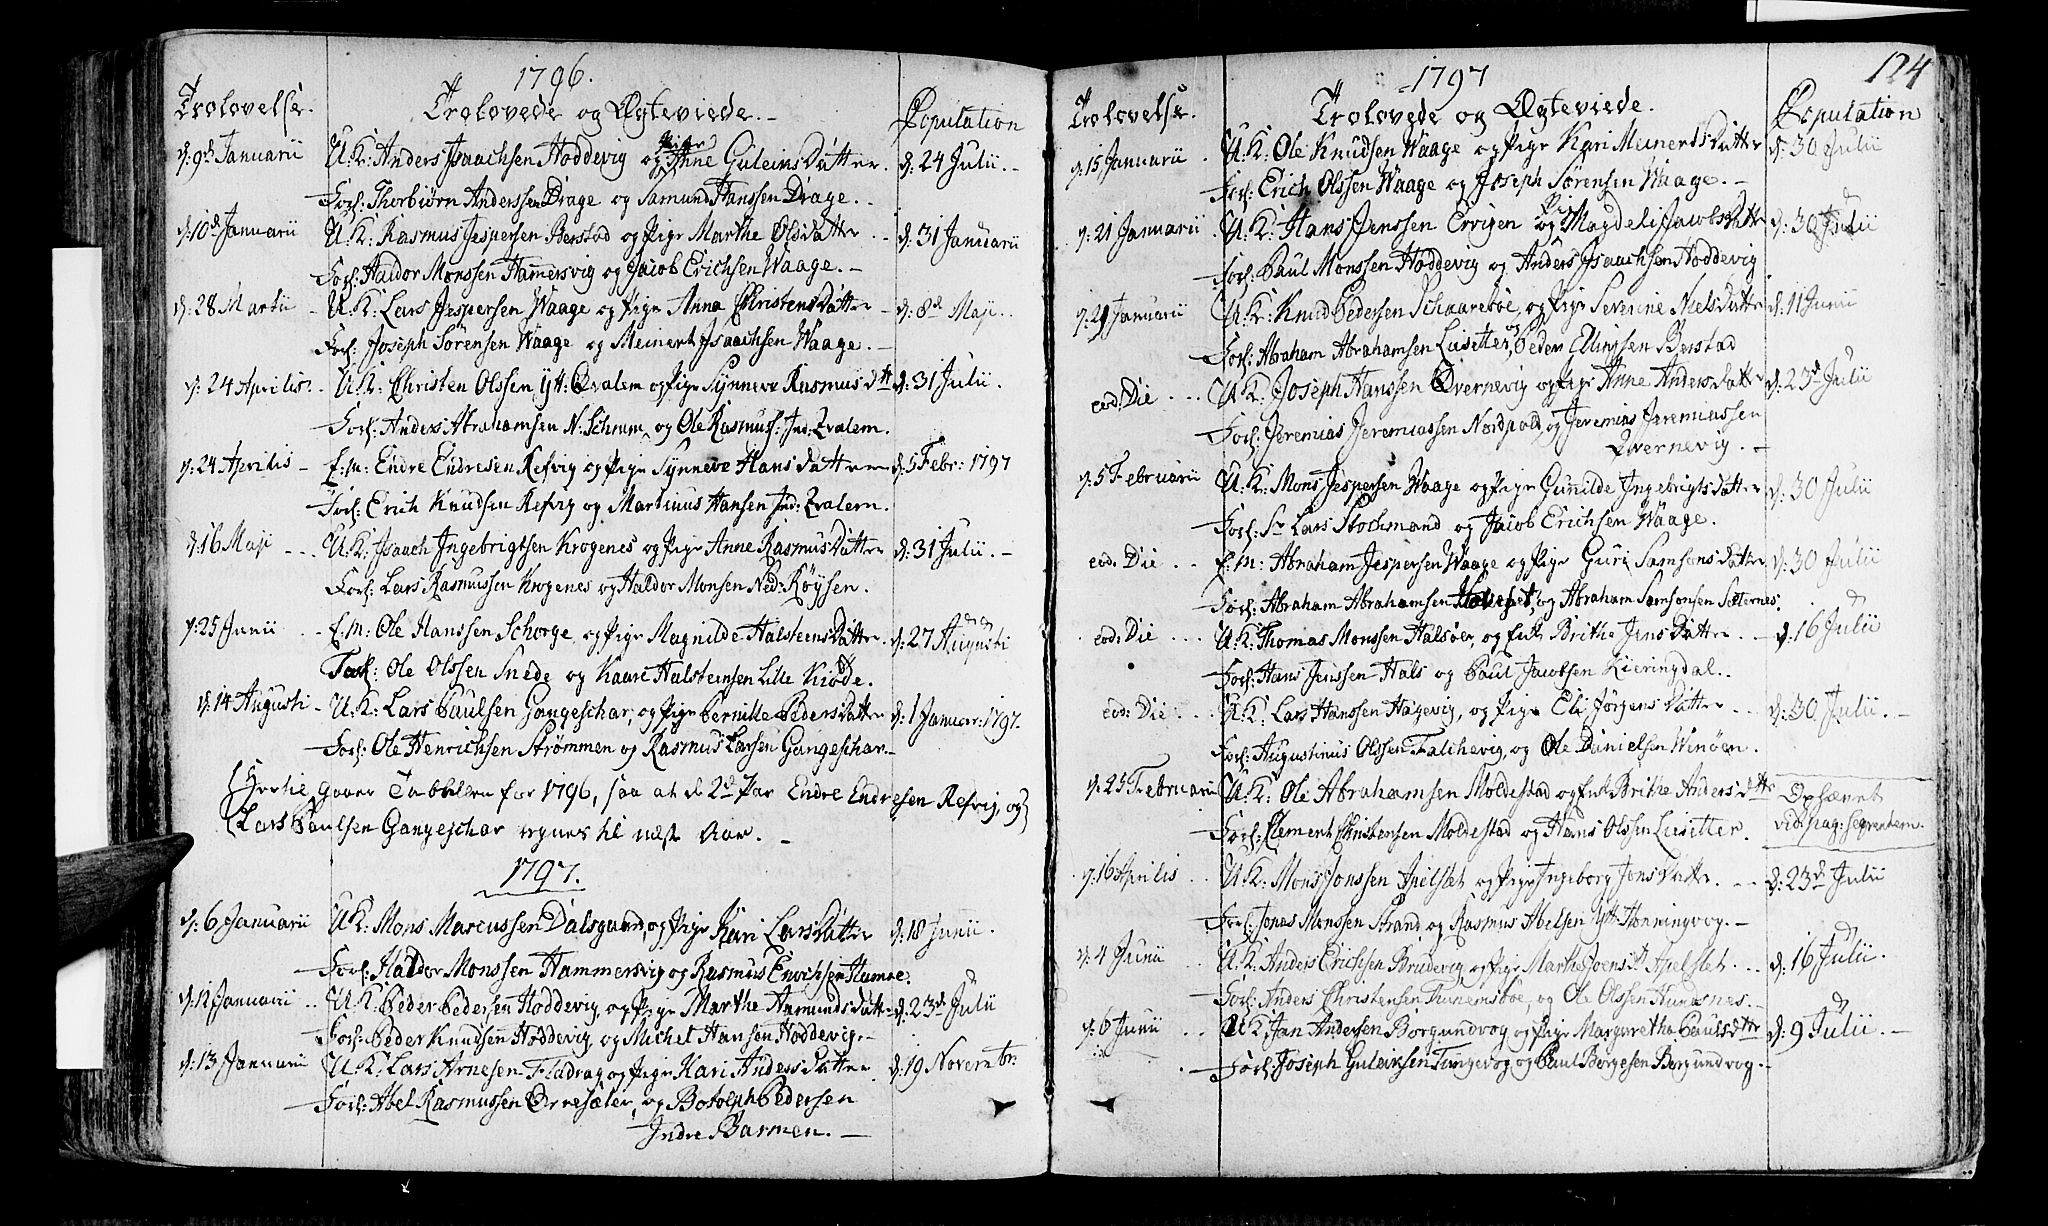 1796.
Trolovelse. Trolovede og Ægteviede. Copulation
d: 9d Januarii U: K: Anders Isaachsen Hoddevig og Pige Anne Guleins Datter. d: 24 Julii.
Forl: Thorbiørn Anderssen Drage og Samund Hanssen Drage.
d: 10d Januarii U: K: Rasmus Jespersen Berstad og Pige Marthe Ols Datter d: 31 Januarii
Forl: Haldor Monssen Hamersvig og Jacob Erichsen Waage.
d: 28 Martii U: K: Lars Jespersen Waage og Pige Anna Christens Datter d: 8d Maji
Forl: Joseph Sørensen Waage og Meinert Isaachsen Waage.
d: 24 Aprilis U: K: Christen Olssen Ytt: Qvalem og Pige Synneve Rasmus dtt d: 31 Julii.
Forl: Anders Abrahamsen N: Schram og Ole Rasmus: Ind: Qvalem.
d: 24 Aprilis E: M: Endre Endresen Refvig og Pige Synneve Hans datter d: 5 Febr: 1797
Forl: Erich Knudsen Refvig og Martinus Hansen Ind: Qvalem.
d: 16 Maji U: K: Isaach Ingebrigtsen Krogenes og Pige Anne Rasmus Datter d: 31 Julii.
Forl: Lars Rasmussen Krogenes og Haldor Monsen Ned: Røysen.
d: 25 Junii E: M: Ole Hanssen Schorge og Pige Magnilde Halsteens Datter. d: 27 Augusti
Forl: Ole Olssen Snede og Kaare Halsteinsen Lille Kiøde.
d: 14 Augusti U: K: Lars Paulsen Gangeschar, og Pige Pernille Peders Datter d: 1 Januar: 1797.
Forl: Ole Henrichsen Strømmen og Rasmus Larsen Gangeschar.
(Hertil gaaer Tabellen for 1796, saa at de 2d Par Endre Endresen Refvig, og)
(Lars Paulsen Gangeschar regnes til næst Aar.
1797.
d: 6 Januarii U: K: Mons Marcussen Dalsgaard, og Pige Kari Lars Datter d: 18 Junii.
Forl: Haldor Monssen Hammersvig og Rasmus Enochsen Humoe.
d: 12 Januarii U: K: Peder Pedersen Hoddevig, og Pige Marthe Aamunds datter d: 23d Julii
Forl: Peder Knudsen Hoddevig og Michel Hansen Hoddevig.
d: 13 Januarii U: K: Lars Arnesen Fladrag og Pige Kari Anders Datter d: 19 Novembr:
Forl: Abel Rasmussen Ørnesæter, og Botolph Pedersen
Indre Barmen.
124
1797
Trolovelse. Trolovede og Ægteviede. Copulation
d: 15 Januarii U: K: Ole Knudsen Waage og Pige Kari Meinerts Datter d: 30 Julii
Forl: Erich Olssen Waage og Joseph Sørensen Waage.
d: 21 Januarii U: K: Hans Jenssen Ervigen og Pige Magdeli Jacobs Datter d: 30 Julii
Forl: Paul Monssen Hoddevig og Anders Isaachsen Hoddevig
d: 21 Januarii U: K: Knud Pedersen Schaarebøe, og Pige Severine Niels Datter d: 11 Junii
Forl: Abraham Abrahamsen Liisetter, og Peder Ellingsen Berstad
eod: Die U: K: Joseph Hanssen Qvernevig og Pige Anne Anders Datter d: 23d Julii
Forl: Jeremias Jeremiassen Nordpold, og Jeremias Jeremiassen
Qvernevig.
d: 5 Februarii U: K: Mons Jespersen Waage og Pige Gunilde Ingebrigts Datter d: 30 Julii
Forl: Sr Lars Stochmand og Jacob Erichsen Waage.
eod: Die E: M: Abraham Jespersen Waage og Pige Guri Samsons Datter d: 30 Julii
Forl: Abraham Abrahamsen og Abraham Samsonsen Setternes.
eod: Die U: K: Thomas Monssen Halsøer, og Enk: Brithe Jens Datter d: 16 Julii
Forl: Hans Jenssen Hals og Paul Jacobsen Kieringdal.
eod: Die U: K: Lars Hanssen Hagevig, og Pige Eli Jørgens Datter d: 30 Julii.
Forl: Augustinus Olssen Falchevig, og Ole Danielsen Winøen.
d: 25 Februarii U: K: Ole Abrahamsen Moldestad og Enk: Brithe Anders dttr Ophævet
Forl: Clement Christensen Moldestad og Hans Olssen Liisetter. vid: pag: seqventem.
d: 16 Aprilis U: K: Mons Jonssen Apelset og Pige Ingeborg Jons Datter. d: 23d Julii
Forl: Jonas Monssen Strand og Rasmus Abelsen Ytt: Honningvog.
d: 4 Junii U: K: Anders Erichsen Brudevig og Pige Marthe Joens dt Apelset d: 16 Julii.
Forl: Anders Christensen Tunemsbøe, og Ole Olssen Hundsnes.
d: 6 Junii U: K: Jan Andersen Borgundvog og Pige Margaretha Pauls dttr d: 9 Julii.
Forl: Joseph Guleiksen Tungevog og Paul Børgesen Borgundvog.